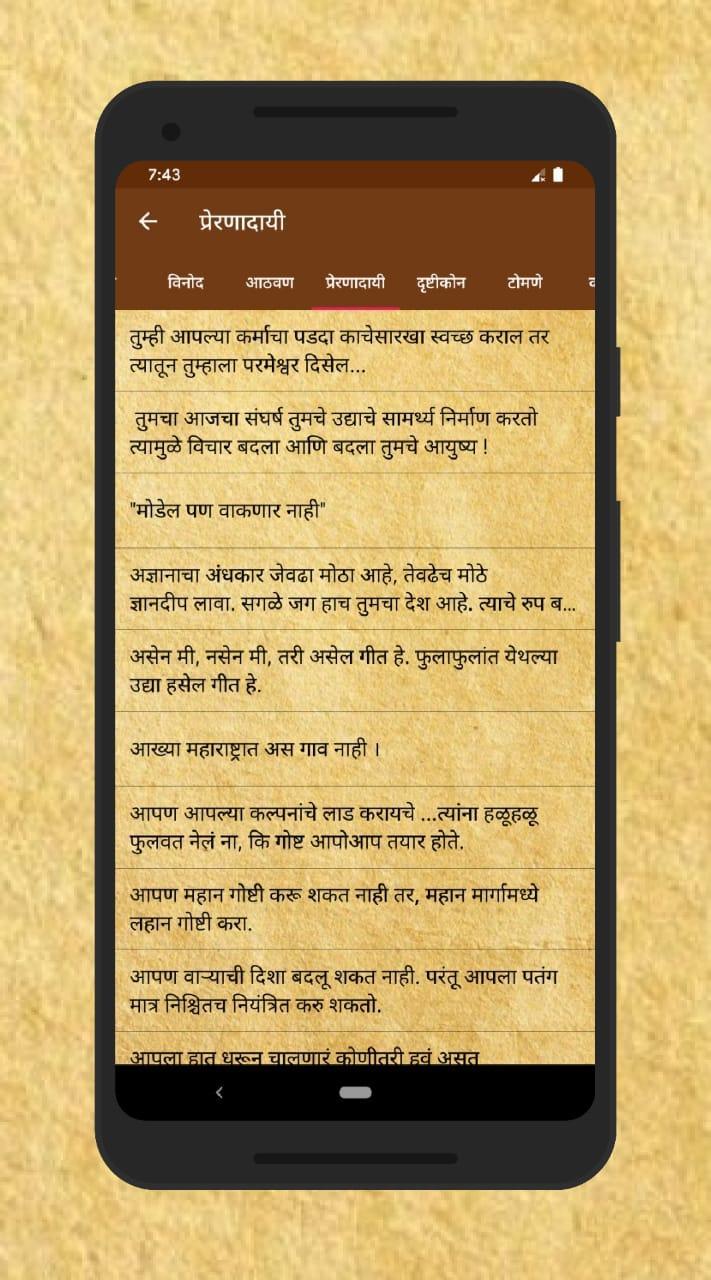 7:43
प्रेरणादायी
विनोद आठवण प्रेरणादायी दृष्टीकोन टोमणे
तुम्ही आपल्या कर्माचा पडदा काचेसारखा स्वच्छ कराल तर
त्यातून तुम्हाला परमेश्वर दिसेल...
तुमचा आजचा संघर्ष तुमचे उद्याचे सामर्थ्य निर्माण करतो
त्यामुळे विचार बदला आणि बदला तुमचे आयुष्य !
"मोडेल पण वाकणार नाही"
अज्ञानाचा अंधकार जेवढा मोठा आहे, तेवढेच मोठे
ज्ञानदीप लावा. सगळे जग हाच तुमचा देश आहे. त्याचे रुप ब...
असेन मी, नसेन मी, तरी असेल गीत हे. फुलाफुलांत येथल्या
उद्या हसेल गीत हे.
आख्या महाराष्ट्रात अस गाव नाही ।
आपण आपल्या कल्पनांचे लाड करायचे ...त्यांना हळूहळू
फुलवत नेलं ना, कि गोष्ट आपोआप तयार होते.
आपण महान गोष्टी करू शकत नाही तर, महान मार्गामध्ये
लहान गोष्टी करा.
आपण वाऱ्याची दिशा बदलू शकत नाही. परंतू आपला पतंग
मात्र निश्चितच नियंत्रित करु शकतो.
आपला हात धरून चालणारं कोणीतरी हवं असत